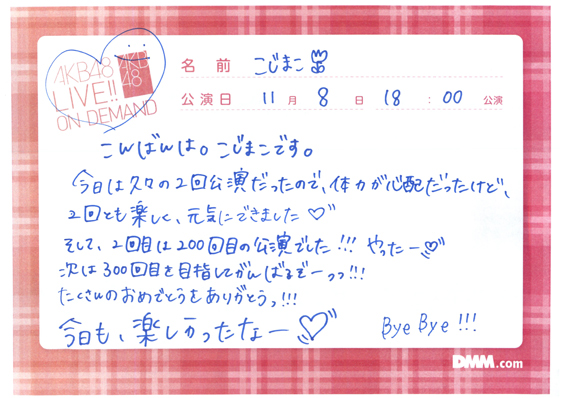 AKB48
LIVE!!
ON DEMAND
AKB
48
名前 こじまこ
公演日 11月8日 18:00 公演
こんばんは。こじまこです。
今日は久々の2回公演だったので、体力が心配だったけど、
2回とも楽しく、元気にできました♡
そして、2回目は200回目の公演でした!!! やったー♡
次は300回目を目指してがんばるぞーっっ!!!
たくさんのおめでとうをありがとうっ!!!
今日も、楽しかったなー♡
Bye Bye!!!
DMM.com